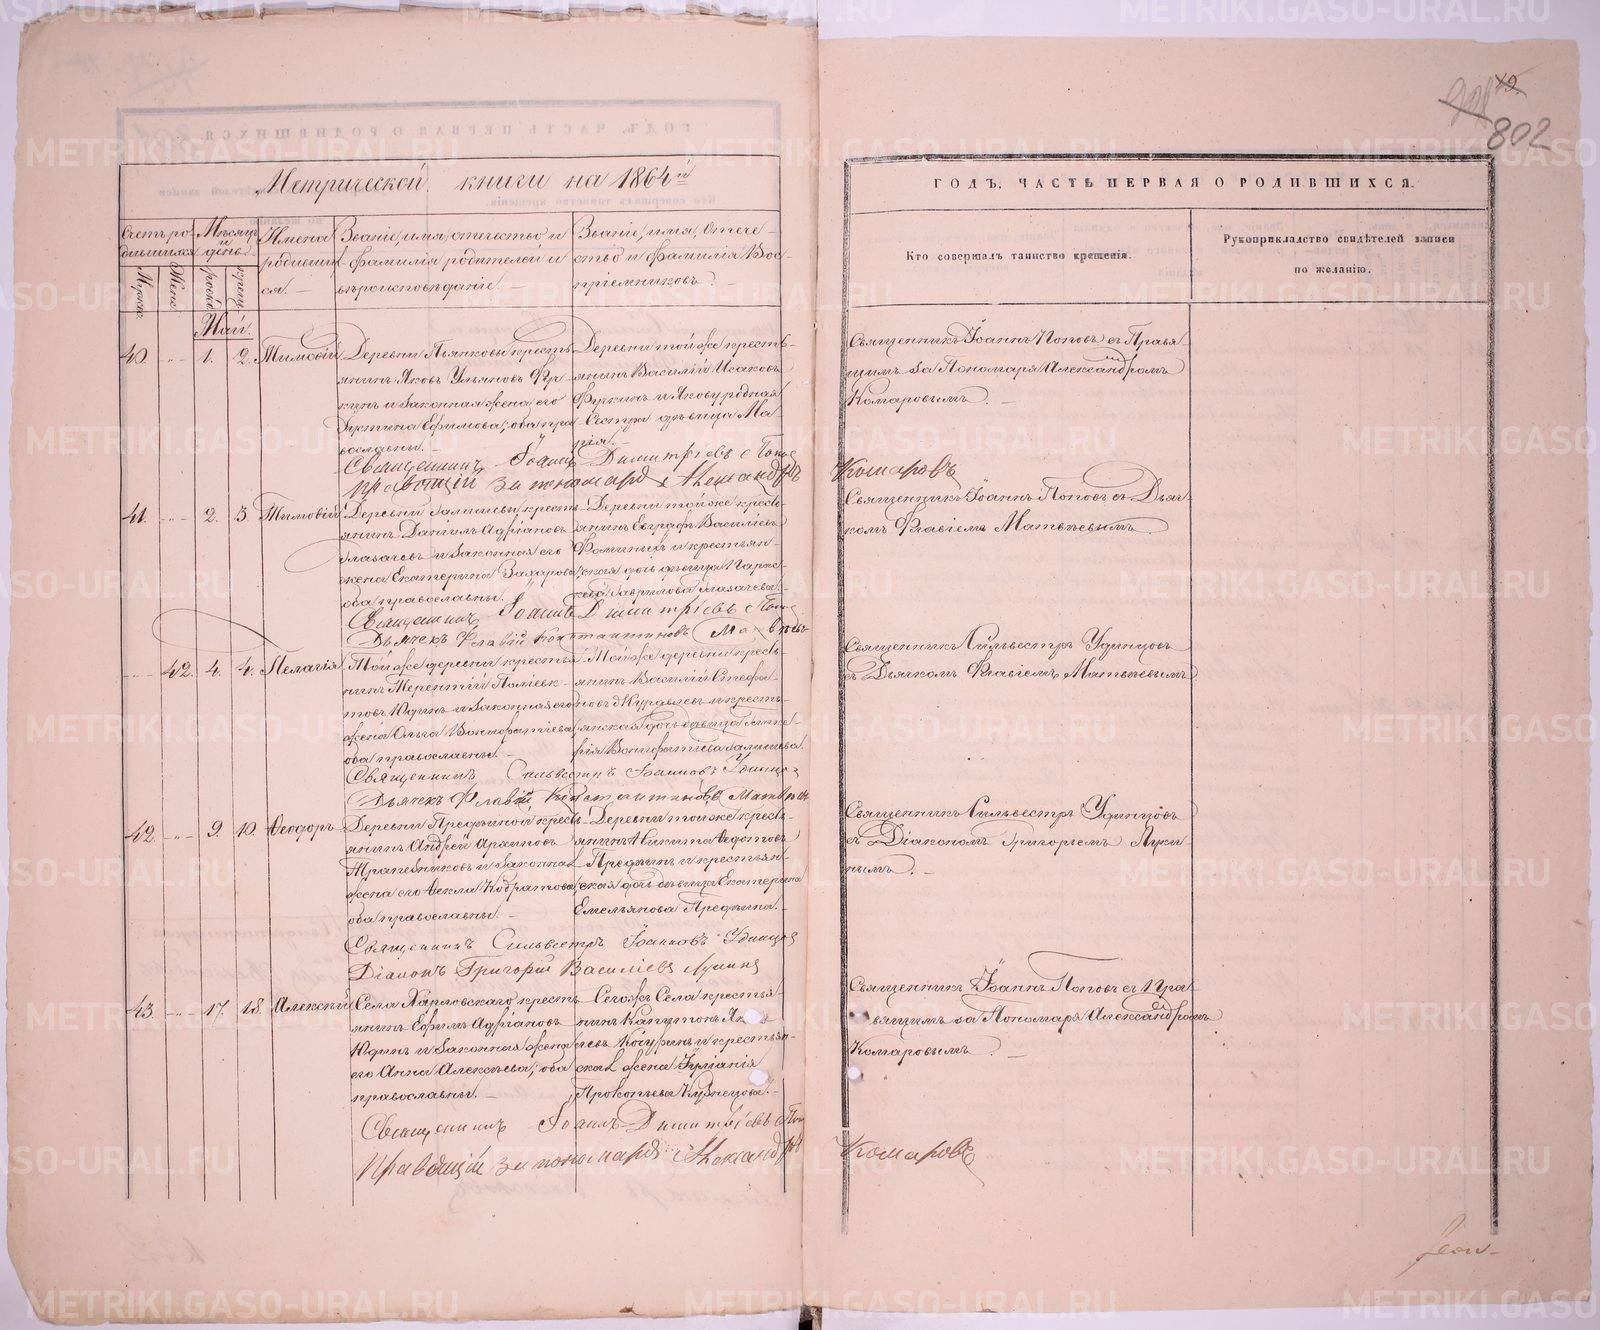 METRIKI.GASO-URAL.RU
802
Метрической книги на 1864й
ГОДЪ, ЧАСТЬ ПЕРВАЯ О РОДИВШИХСЯ.
Счетъ ро-
дившихся
Мужс.
Женс.
Мѣсяцъ
и
день
рожд.
крещ.
Имена
родивших-
ся.
Званіе, имя, отчество и
фамилія родителей и
вѣроисповѣданіе.
Званіе, имя, отече-
ство и фамилія Вос-
пріемниковъ.
Кто совершалъ таинство крещенія.
Рукоприкладство свидѣтелей записи
по желанію.
Май.
40. 1. 2. Тимоѳій
Деревни Пьянковы кресть-
янинъ Яковъ Ульяновъ
кинъ и законная жена его
Ефимова; оба пра-
вославны.
Деревни той же кресть-
янинъ Василій Исаковъ
и Якову родная
Сестра дѣвица Ма-
рія.
Священникъ Іоаннъ Поповъ съ Правя-
щимъ за Пономаря Александромъ
Комаровымъ.
Священникъ Іоаннъ Димитріевъ Попов
Правящій за пономаря Александръ
Комаровъ
41. 2. 3. Тимоѳій
Деревни Галишевы кресть-
янинъ Даніилъ Адріановъ
Глазачевъ и законная его
жена Екатерина Захарова,
оба православны.
Деревни той же кресть-
янинъ Евграфъ Василіевъ
Фоминыхъ и крестьян-
ская дочь дѣвица Парас-
кева Гаврилова Глазачева.
Священникъ Іоаннъ Поповъ съ Дьяч-
комъ Флавіемъ Матвѣевымъ
Священникъ Іоаннъ Димитріевъ Попов
Дьячекъ Флавій Константиновъ Матвѣевъ
42. 4. 4. Пелагія
Той же деревни кресть-
янинъ Терентій Поліевк-
товъ Юдинъ и законная его
жена Ольга Вонифатіева
оба православны.
Той же деревни кресть-
янинъ Василій Стефа-
новъ Журавлевъ и кресть-
янская дочь дѣвица
Вонифатіева Галишева.
Священникъ Сильвестръ Удинцовъ
съ Дьячкомъ Флавіемъ Матвѣевымъ
Священникъ Сильвестръ Іоанновъ Удинцов
Дьячекъ Флавій Константиновъ Матвѣевъ
42. 9. 10. Ѳеодоръ
Деревни Предѣиной кресть-
янинъ Андрей Архиповъ
Трапезниковъ и законная
жена его Ѳекла Кодратова
оба православны.
Деревни той же кресть-
янинъ Никита Ѳедотовъ
Предѣинъ и крестьян-
ская дочь дѣвица Екатерина
Емельянова Предѣина.
Священникъ Сильвестръ Удинцовъ
съ Діакономъ Григорьемъ Луки-
нымъ.
Священникъ Сильвестръ Іоанновъ Удинцов
Діаконъ Григорій Василіевъ Лукинъ
43. 17. 18. Алексѣй
Села Харловскаго кресть-
янинъ Ефимъ Адріановъ
Юдинъ и законная жена
его Анна Алексѣева; оба
православны.
Сегожъ Села крестья-
нинъ Капитонъ Як
левъ Косуринъ и крестьян-
ская жена Іуліанія
Прокопьева Кузнецова.
Священникъ Іоаннъ Поповъ съ Пра-
вящимъ за Пономаря Александромъ
Комаровымъ.
Священникъ Іоаннъ Димитріевъ Поп
Правящій за пономаря Александръ
Комаровъ